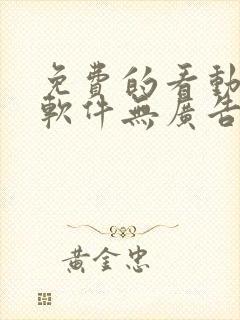 免費的看動
軟件無廣告
黃金忠